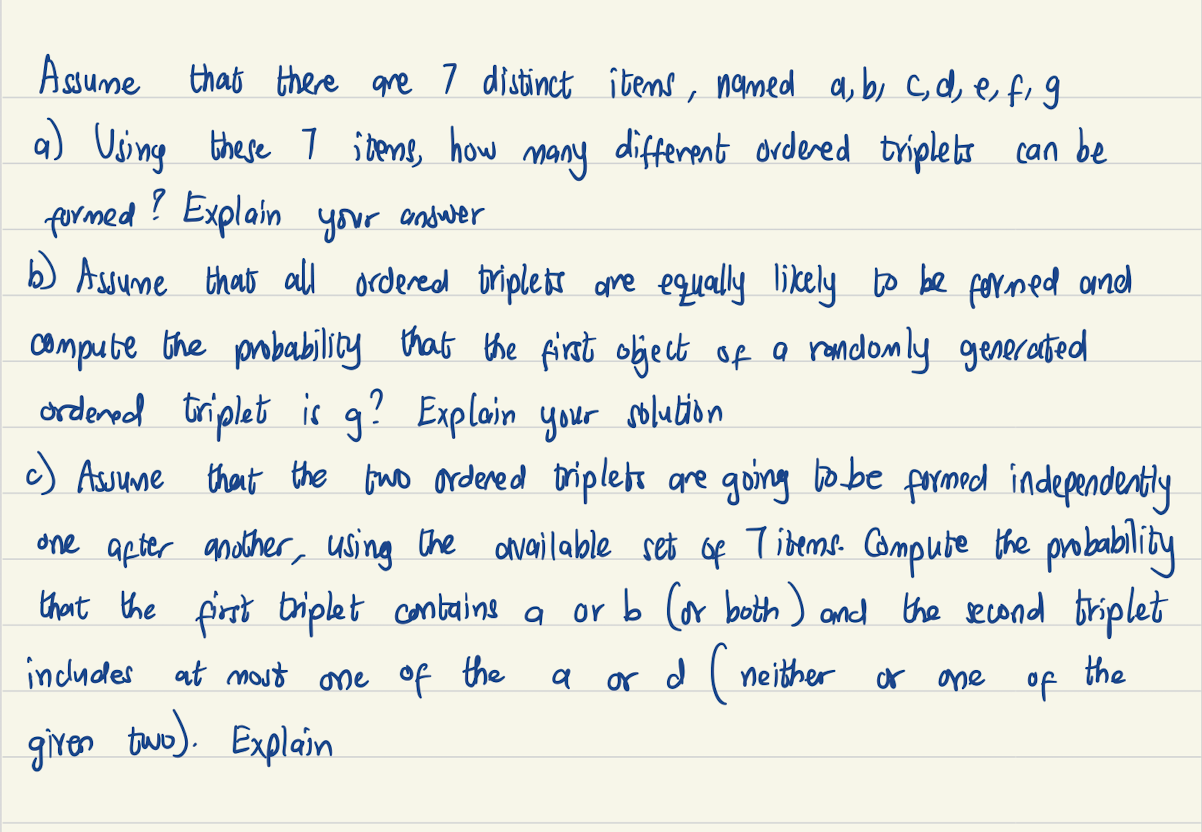 Assume that there are 7 distinct items, named a, b, c, d, e, f, g
a) Using these 7 items, how many different ordered triplets can be
formed? Explain your answer
b) Assume that all ordered triplets are equally likely to be formed and
compute the probability that the first object of a randomly generated
ordered triplet is g? Explain your solution
c) Assume that the two ordered triplets are going to be formed independently
one after another, using the available set of 7 items. Compute the probability
that the first triplet contains a or b (or both) and the second triplet
includes at most one of the a or d (neither or one of the
given two). Explain